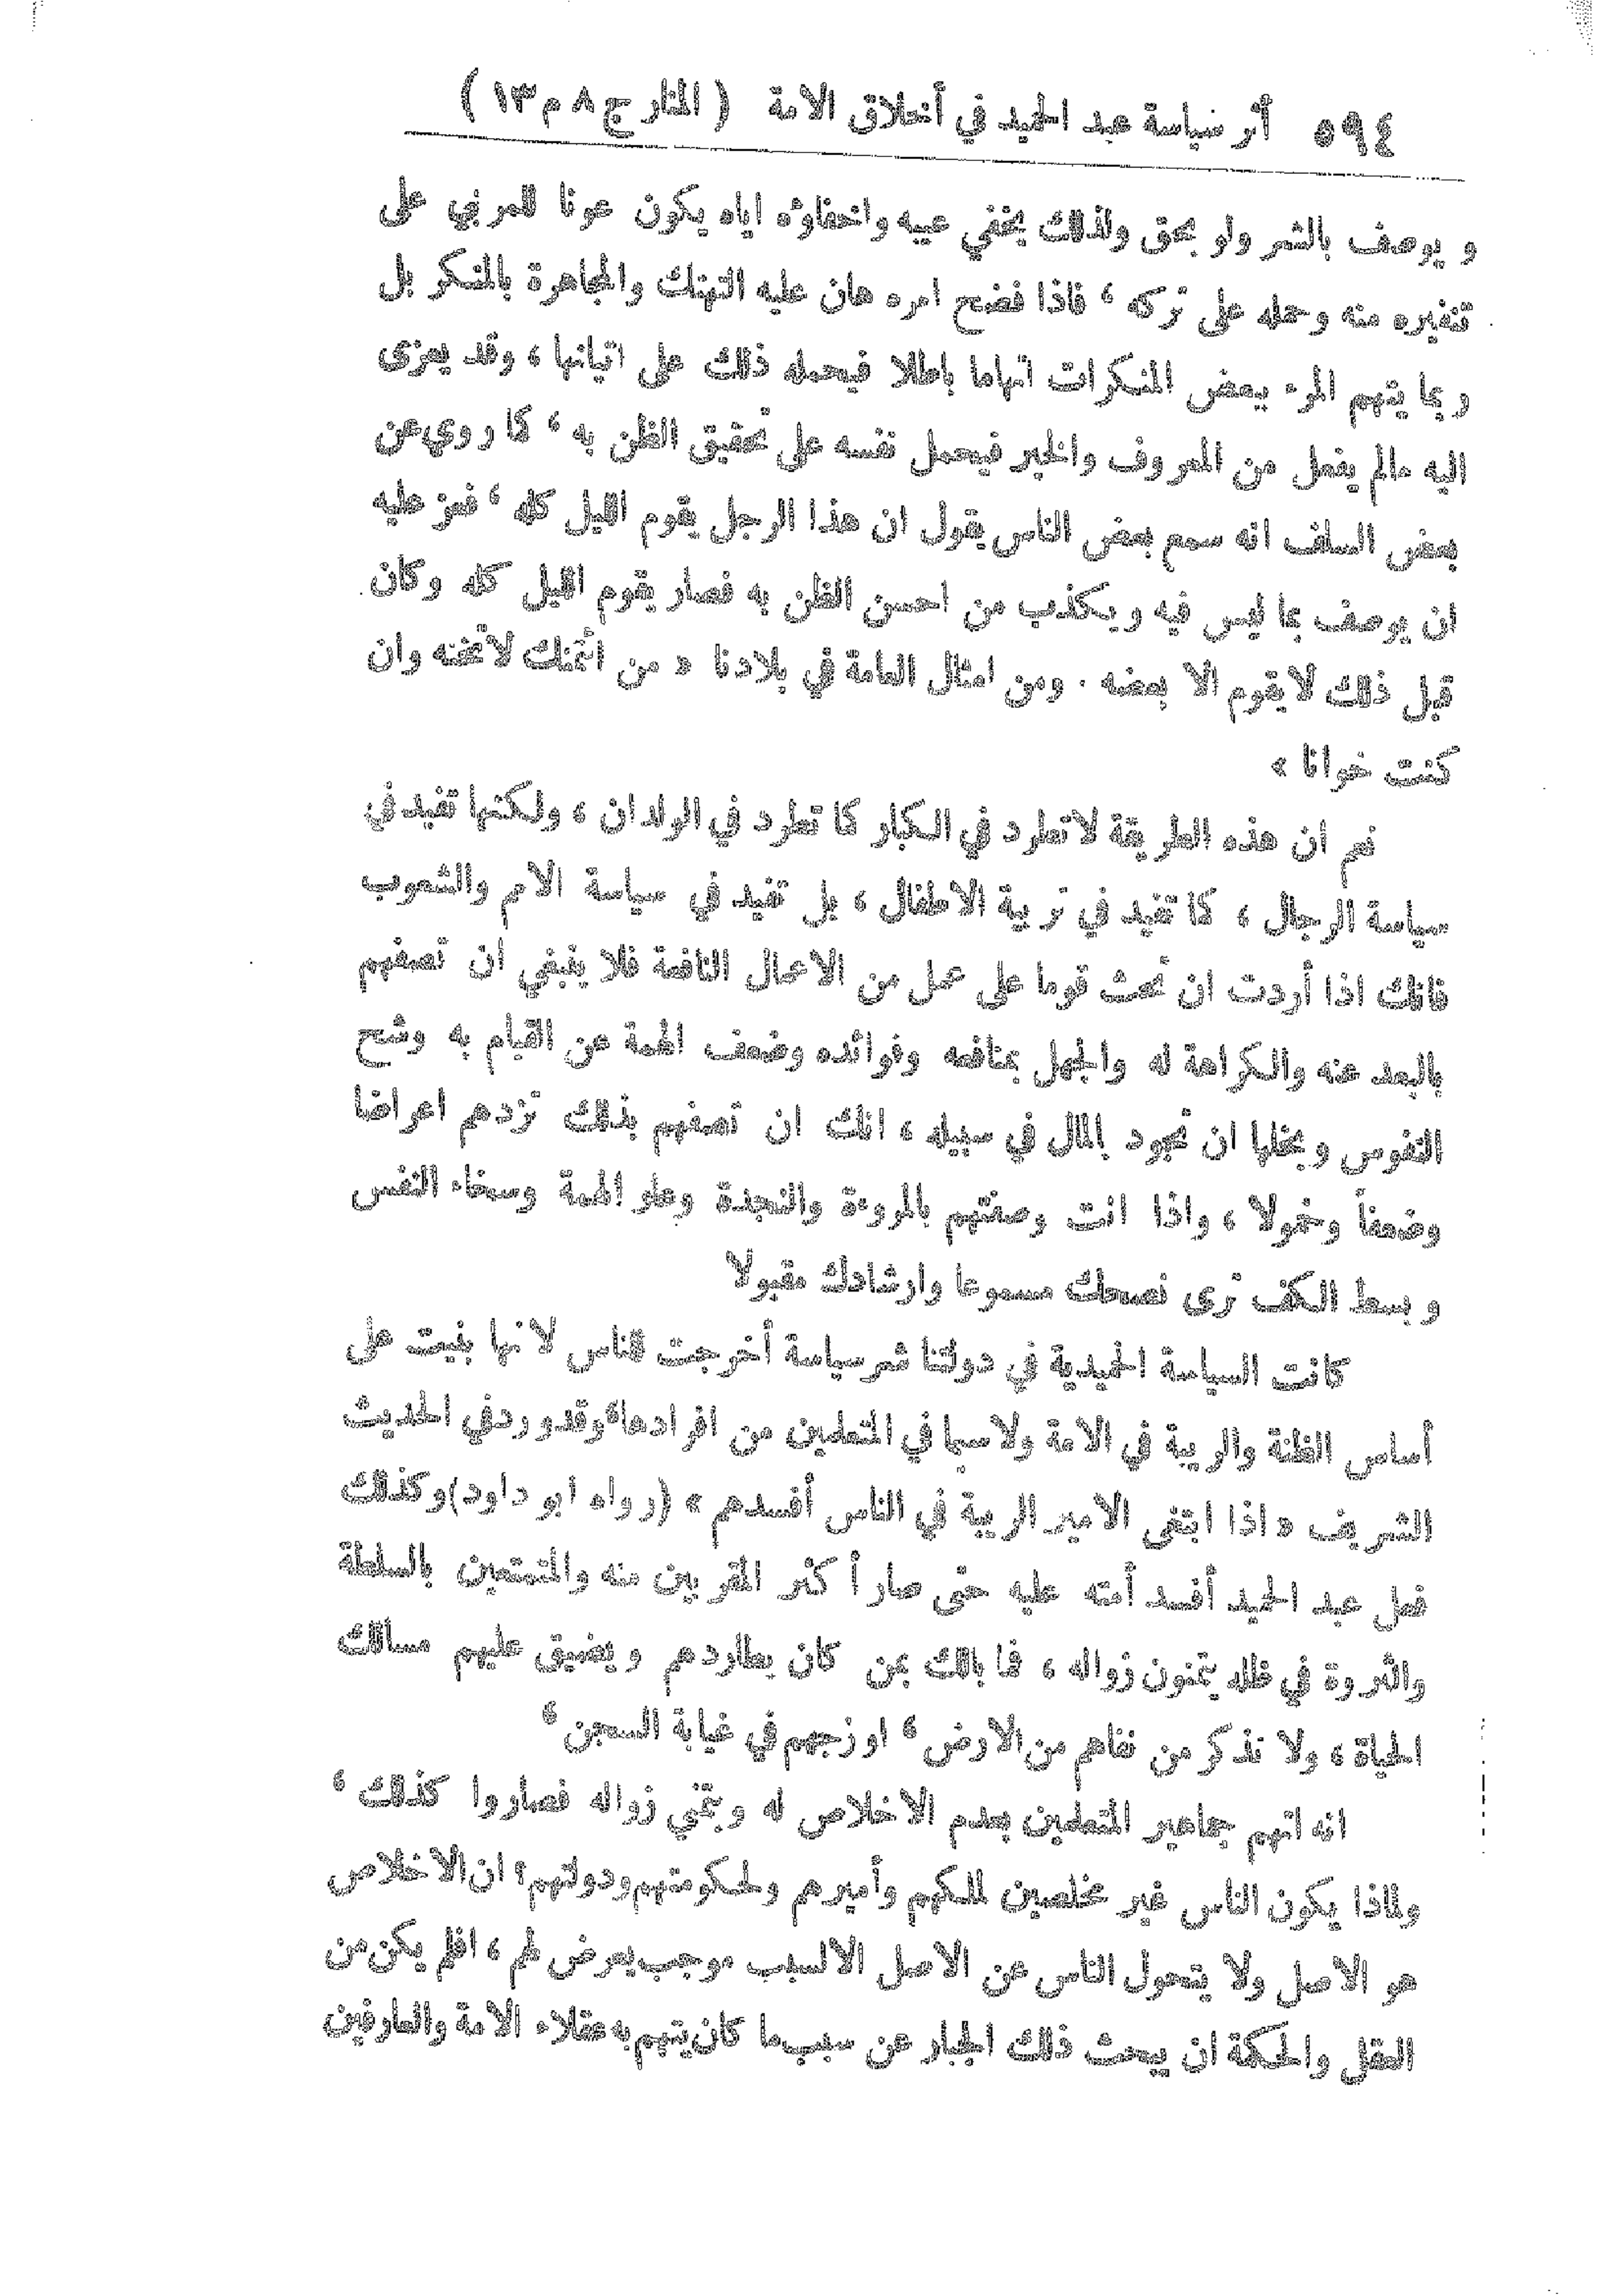 ٥٩٤ أثر سياسة عبد الحميد في أخلاق الامة ( المنار ج ٨ م ١٣ )
و يوصف بالشر ولو بحق ولذلك يخفي عيبه واخفاؤه اياه يكون عونا للمربي على
تنفيره منه وحمله على تركه ، فاذا فضح امره هان عليه التهتك والمجاهرة بالمنكر بل
ربما يتهم المرء ببعض المنكرات اتهاما باطلا فيحمله ذلك على اتيانها ، وقد يعزى
اليه مالم يفعل من المعروف والخير فيحمل نفسه على تحقيق الظن به ، كما روي عن
بعض السلف انه سمع بعض الناس يقول ان هذا الرجل يقوم الليل كله ، فعز عليه
ان يوصف بما ليس فيه ويكذب من احسن الظن به فصار يقوم الليل كله وكان
قبل ذلك لا يقوم الا بعضه . ومن امثال العامة في بلادنا « من ائتمنك لا تخنه وان
كنت خوانا »
نعم ان هذه الطريقة لا تطرد في الكبار كما تطرد في الولدان ، ولكنها تفيد في
سياسة الرجال ، كما تفيد في تربية الاطفال ، بل تفيد في سياسة الامم والشعوب
فانك اذا أردت ان تحث قوما على عمل من الاعمال النافعة فلا ينبغي ان تصفهم
بالبعد عنه والكراهة له والجهل بمنافعه وفوائده وضعف الهمة عن القيام به وشح
النفوس وبخلها ان تجود بالمال في سبيله ، انك ان تصفهم بذلك تزدهم اعراضا
وضعفاً وخمولا ، واذا انت وصفتهم بالمروءة والنجدة وعلو الهمة وسخاء النفس
و بسط الكف ترى نصحك مسموعا وارشادك مقبولا
كانت السياسة الحميدية في دولتنا شر سياسة أخرجت للناس لانها بنيت على
أساس الظنة والريبة في الامة ولا سيما في المتعلمين من افرادها، وقد ورد في الحديث
الشريف « اذا ابتغى الامير الريبة في الناس أفسدهم » (رواه ابو داود) وكذلك
فعل عبد الحميد أفسد أمته عليه حتى صار أكثر المقربين منه والمتمتعين بالسلطة
والثروة في ظله يتمنون زواله ، فما بالك بمن كان يطاردهم ويضيق عليهم مسالك
الحياة ، ولا تذكر من نفاهم من الارض ، او زجهم في غيابة السجن ،
انه اتهم جماهير المتعلمين بعدم الاخلاص له وبتمني زواله فصاروا كذلك ،
ولماذا يكون الناس غير مخلصين لملكهم وأميرهم ولحكومتهم ودولتهم؟ ان الاخلاص
هو الاصل ولا يتحول الناس عن الاصل الا لسبب موجب يعرض لهم ، افلم يكن من
العقل والحكمة ان يبحث ذلك الجبار عن سبب ما كان يتهم به عقلاء الامة والعارفين